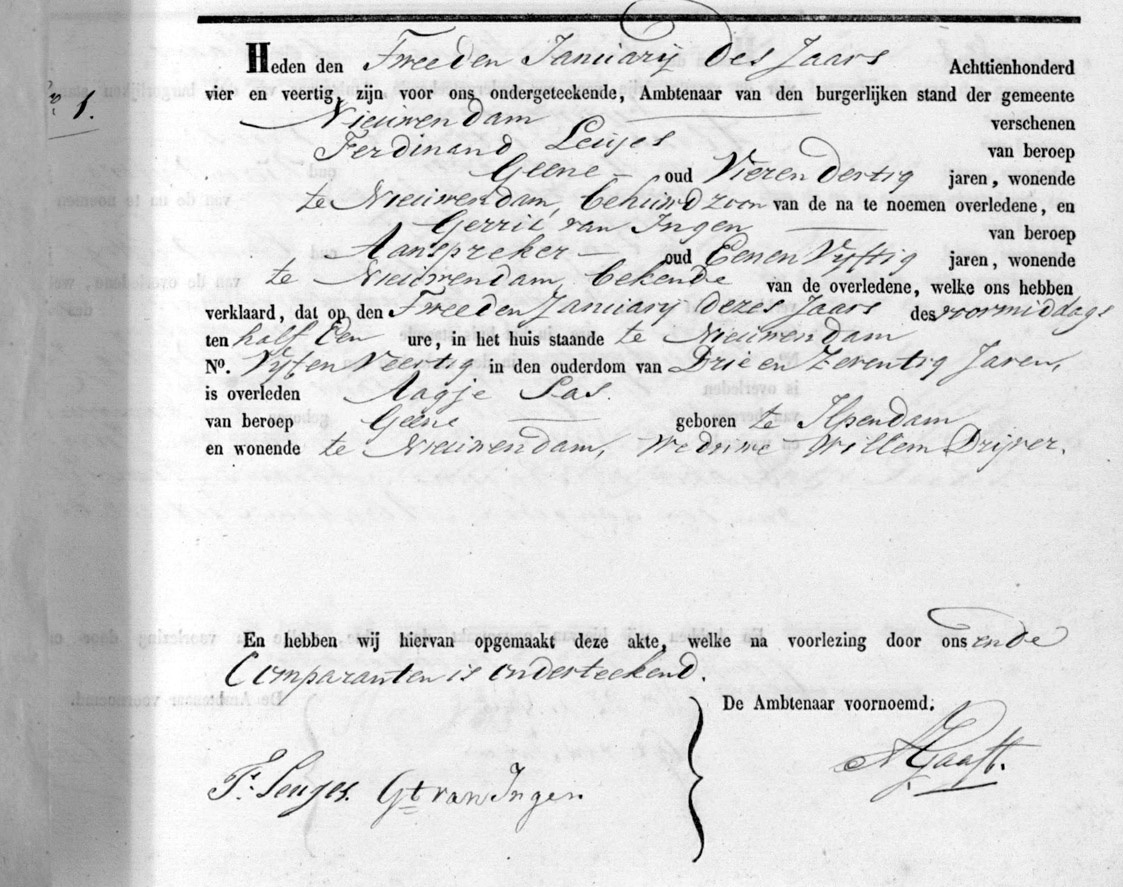 Heden den Tweeden Januarij des Jaars Achttienhonderd
N° 1.
vier en veertig, zijn voor ons ondergeteekende, Ambtenaar van den burgerlijken stand der gemeente
Nieuwendam verschenen
Ferdinand Leujes van beroep
Geene oud Vier en dertig jaren, wonende
te Nieuwendam, behuwd zoon van de na te noemen overledene, en
Gerrit van Ingen van beroep
Aanspreker oud Een en Vyftig jaren, wonende
te Nieuwendam, bekende van de overledene, welke ons hebben
verklaard, dat op den Tweeden January dezes Jaars des voormiddags
ten half Een ure, in het huis staande te Nieuwendam
No. Vyf en Veertig in den ouderdom van Drie en Zeventig Jaren,
is overleden Aagje Sas.
van beroep Geene geboren te Ilpendam
en wonende te Nieuwendam, Weduwe Willem Drijver.
En hebben wij hiervan opgemaakt deze akte, welke na voorlezing door ons en de
Comparanten is onderteekend.
De Ambtenaar voornoemd.
Fr. Leujes. Gt van Ingen